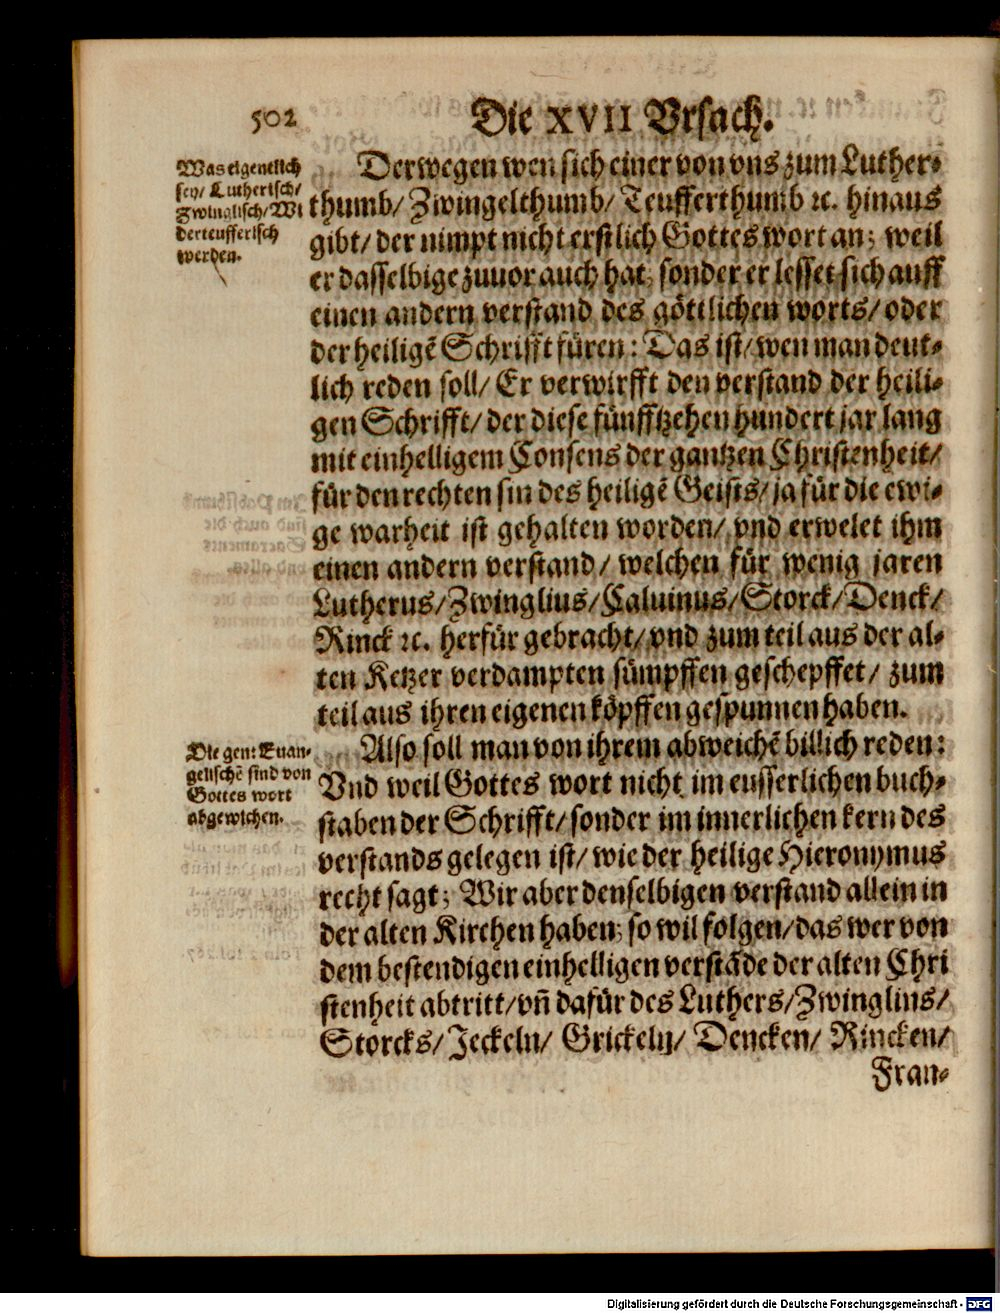 502
Die XVII Vrsach.
Was eigentlich
sey/ Lutherisch/
Zwinglisch/ Wi
derteufferisch
werden.
Derwegen wen sich einer von vns zum Luther⸗
thumb/ Zwingelthumb/ Teufferthumb ꝛc. hinaus
gibt/ der nimpt nicht erstlich Gottes wort an; weil
er dasselbige zuuor auch hat; sonder er lesset sich auff
einen andern verstand des göttlichen worts/ oder
der heiligẽ Schrifft füren: Das ist/ wen man deut⸗
lich reden soll/ Er verwirfft den verstand der heili⸗
gen Schrifft/ der diese fünfftzehen hundert jar lang
mit einhelligem Consens der gantzen Christenheit/
für den rechten sin des heiligẽ Geists/ ja für die ewi⸗
ge warheit ist gehalten worden/ vnd erwelet ihm
einen andern verstand/ welchen für wenig jaren
Lutherus/ Zwinglius/ Caluinus/ Storck/ Denck/
Rinck ꝛc. herfür gebracht/ vnd zum teil aus der al⸗
ten Ketzer verdampten sümpffen geschepffet/ zum
teil aus ihren eigenen köpffen gespunnen haben.
Die gen: Euan⸗
gelischẽ sind von
Gottes wort
abgewichen.
Also soll man von ihrem abweichẽ billich reden:
Vnd weil Gottes wort nicht im eusserlichen buch⸗
staben der Schrifft/ sonder im innerlichen kern des
verstands gelegen ist/ wie der heilige Hieronymus
recht sagt; Wir aber denselbigen verstand allein in
der alten Kirchen haben; so wil folgen/ das wer von
dem bestendigen einhelligen verstãde der alten Chri
stenheit abtritt/ vñ dafür des Luthers/ Zwinglius/
Storcks/ Jeckeln/ Grickeln/ Dencken/ Rincken/
Fran⸗
Digitalisierung gefördert durch die Deutsche Forschungsgemeinschaft - DFG